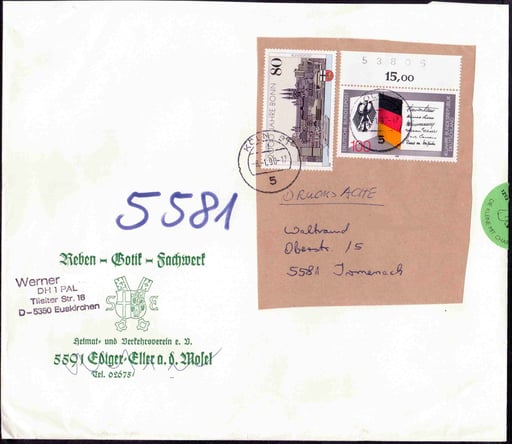 53806
15,00
80
JAHRE BONN
100
KÖLN
5
5581
DRUCKSACHE
Waltraud
Oberstr. 15
5581 Irmenach
Reben – Gotik – Fachwerk
Werner
DH 1 PAL
Tilsiter Str. 16
D–5350 Euskirchen
Heimat- und Verkehrsverein e. V.
5591 Ediger-Eller a. d. Mosel
Tel. 02675